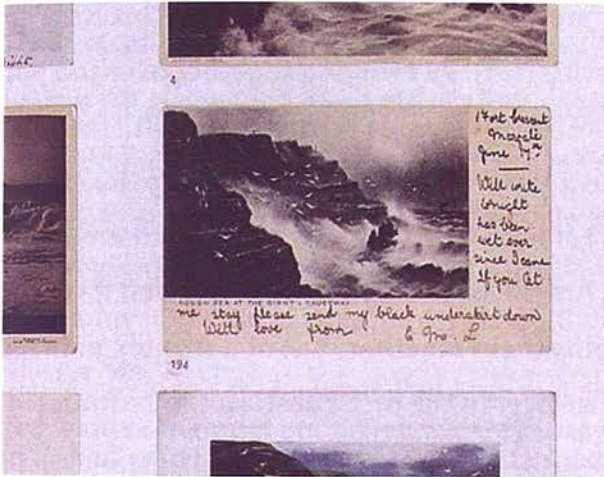 night.
4
Fort Crescent
June 17th
Will write
tonight
has been
wet ever
since I came
If you let
ROUGH SEA AT THE GIANT'S CAUSEWAY
me stay please send my black underskirt down
With love from
194